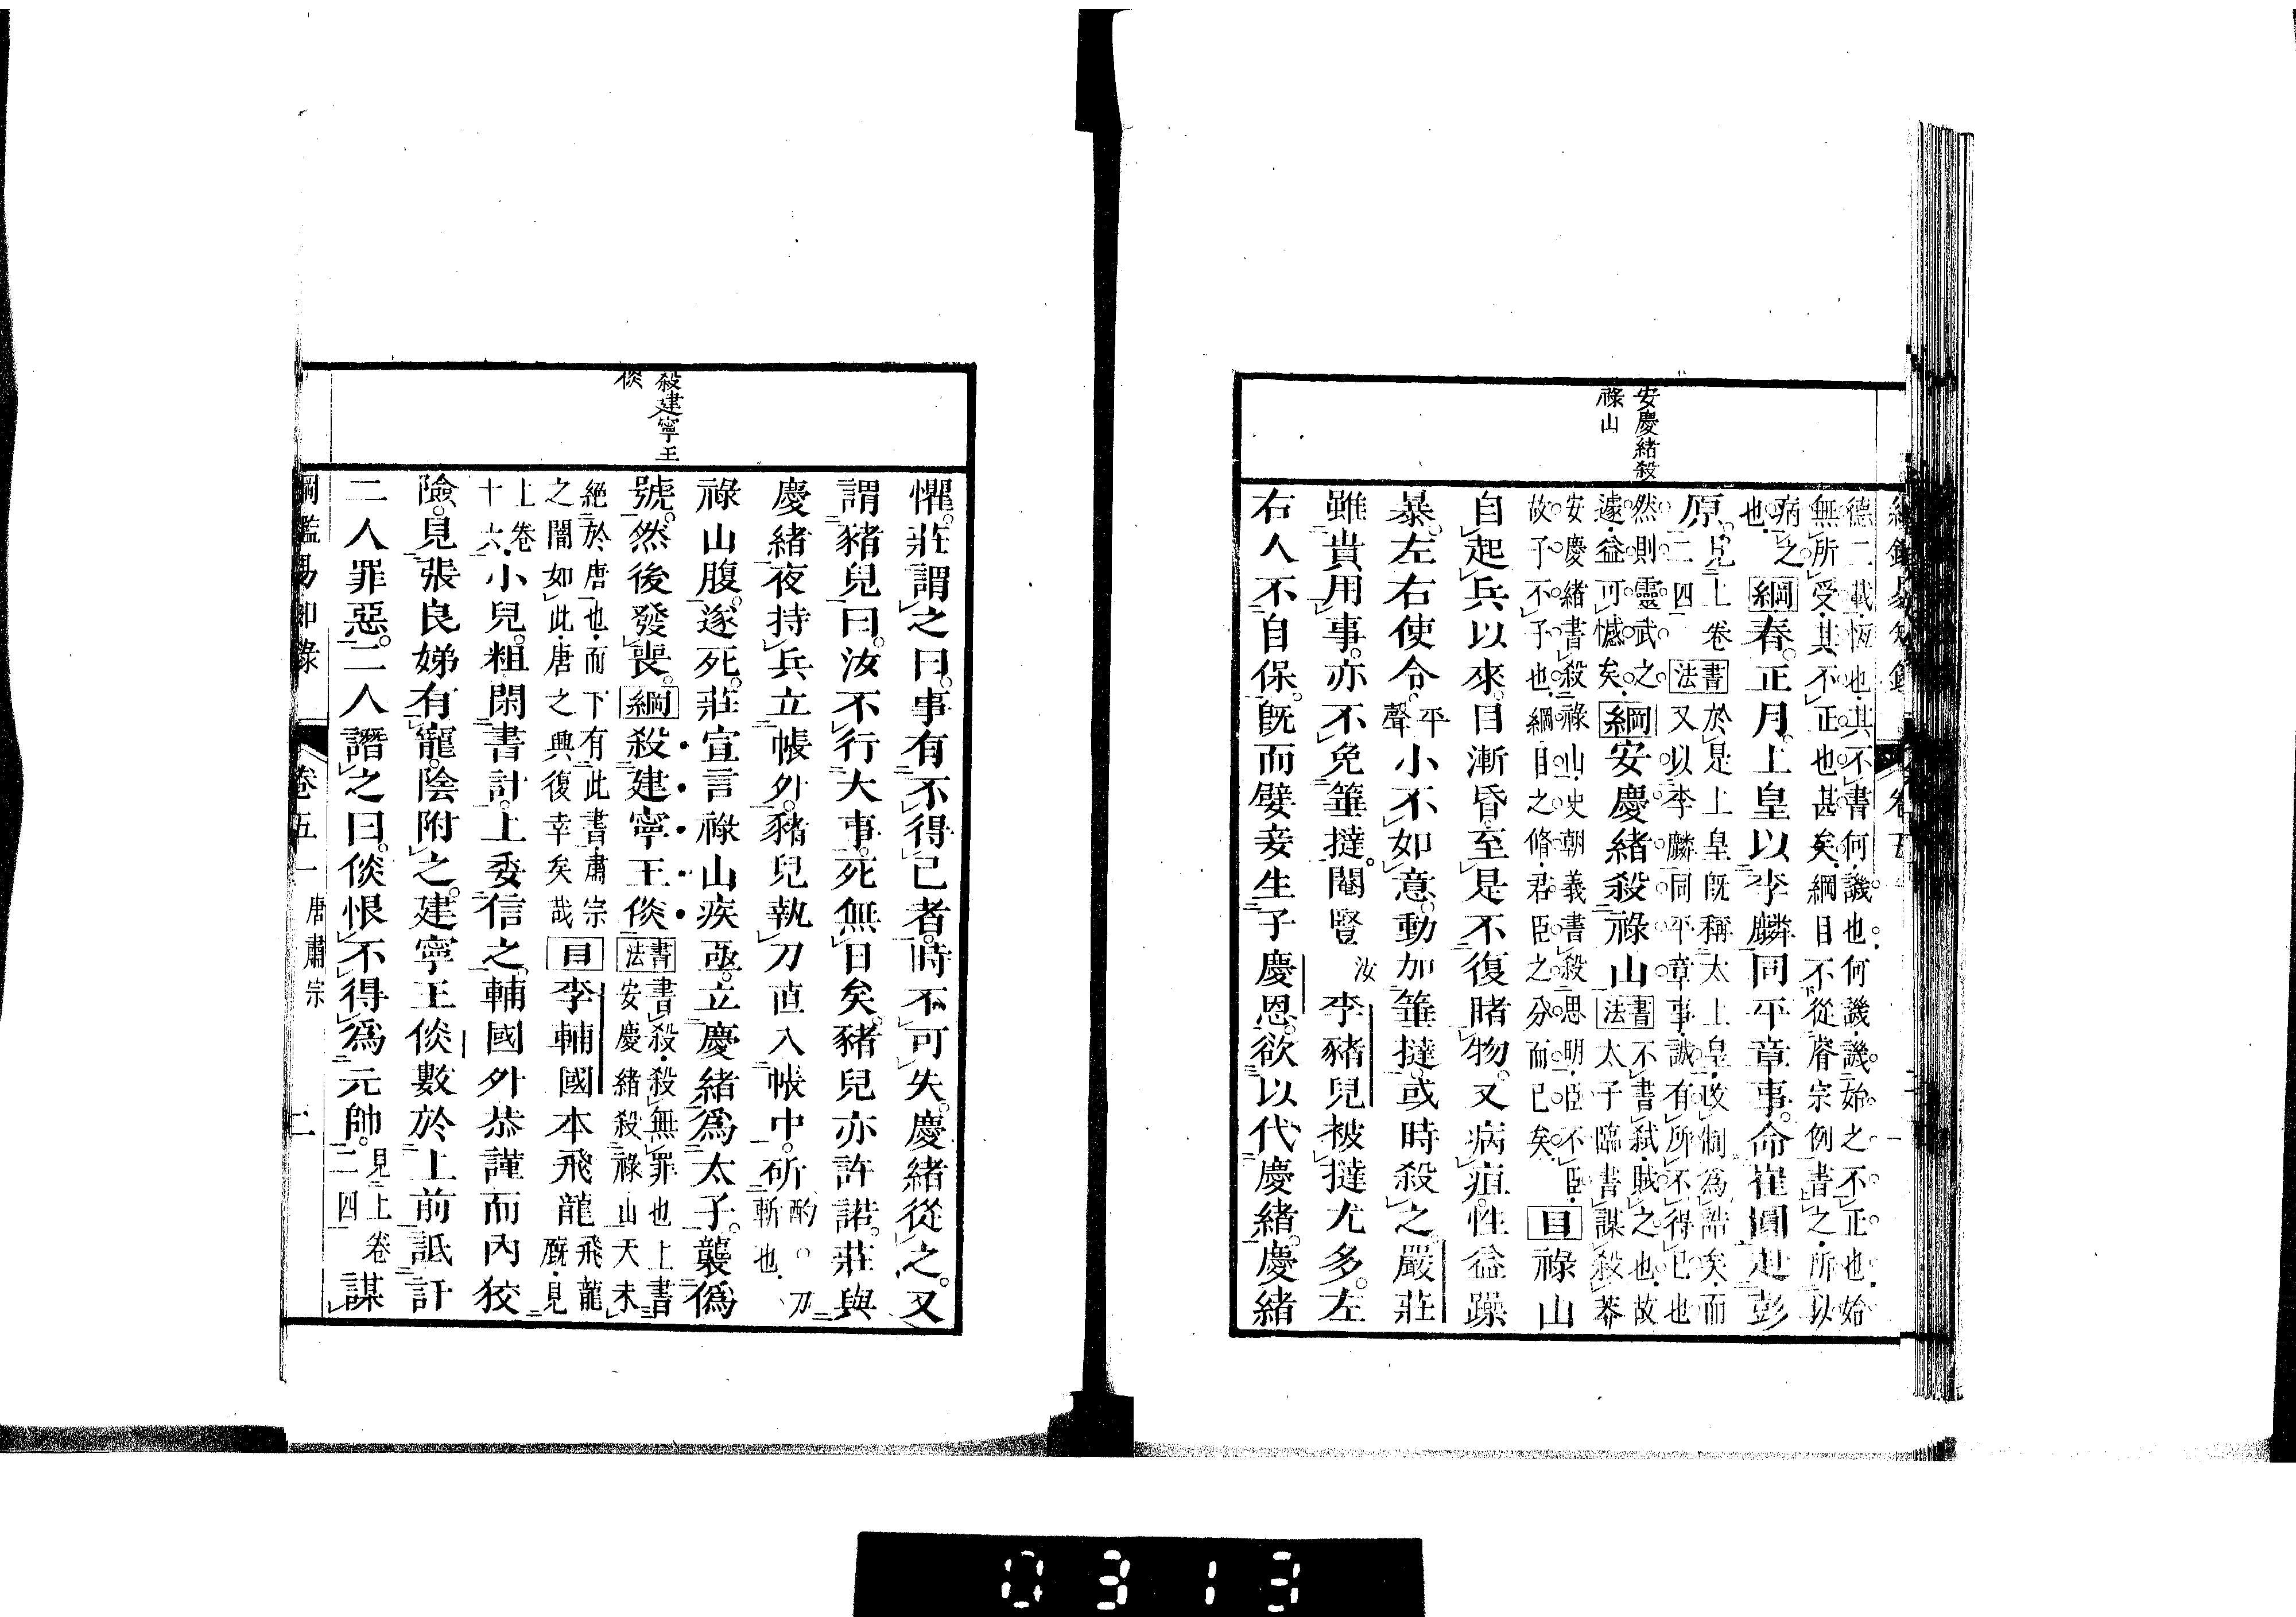 安慶緒殺
祿山
德二載恆也其不書何譏也何譏譏始之不正也始
無所受其不正也甚矣綱目不從睿宗例書之所以
病之
也綱春正月上皇以李麟同平章事命崔圓赴彭
原見上卷二四書法於是上皇旣稱太上皇改制為誥矣而
又以李麟同平章事誠有所不得已也
然則靈武之
遽益可憾矣綱安慶緒殺祿山書法不書弑賊之也故
太子臨書謀殺莽
安慶緒書殺祿山史朝義書殺思明臣不臣
故予不予也綱目之脩君臣之分而已矣目祿山
自起兵以來目漸昏至是不復睹物又病疽性益躁
暴左右使令平聲小不如意動加箠撻或時殺之嚴莊
雖貴用事亦不免箠撻閹豎汝李豬兒被撻尤多左
右人不自保旣而嬖妾生子慶恩欲以代慶緒慶緒
殺建寧王
倓
懼莊謂之曰事有不得已者時不可失慶緒從之又
謂豬兒曰汝不行大事死無日矣豬兒亦許諾莊與
慶緒夜持兵立帳外豬兒執刀直入帳中斫酌刀斬也
祿山腹遂死莊宣言祿山疾亟立慶緒爲太子襲僞
號然後發喪綱殺建寧王倓書法書殺殺無罪也上書
安慶緒殺祿山天未
絕於唐也而下有此書肅宗
之闇如此唐之興復幸矣哉目李輔國本飛龍飛龍廐見
上卷
十六小兒粗閑書計上委信之輔國外恭謹而內狡
險見張良娣有寵陰附之建寧王倓數於上前詆訐
二人罪惡二人譖之曰倓恨不得爲元帥見上卷二四謀
綱鑑易知錄 卷五一 唐肅宗 二
0313